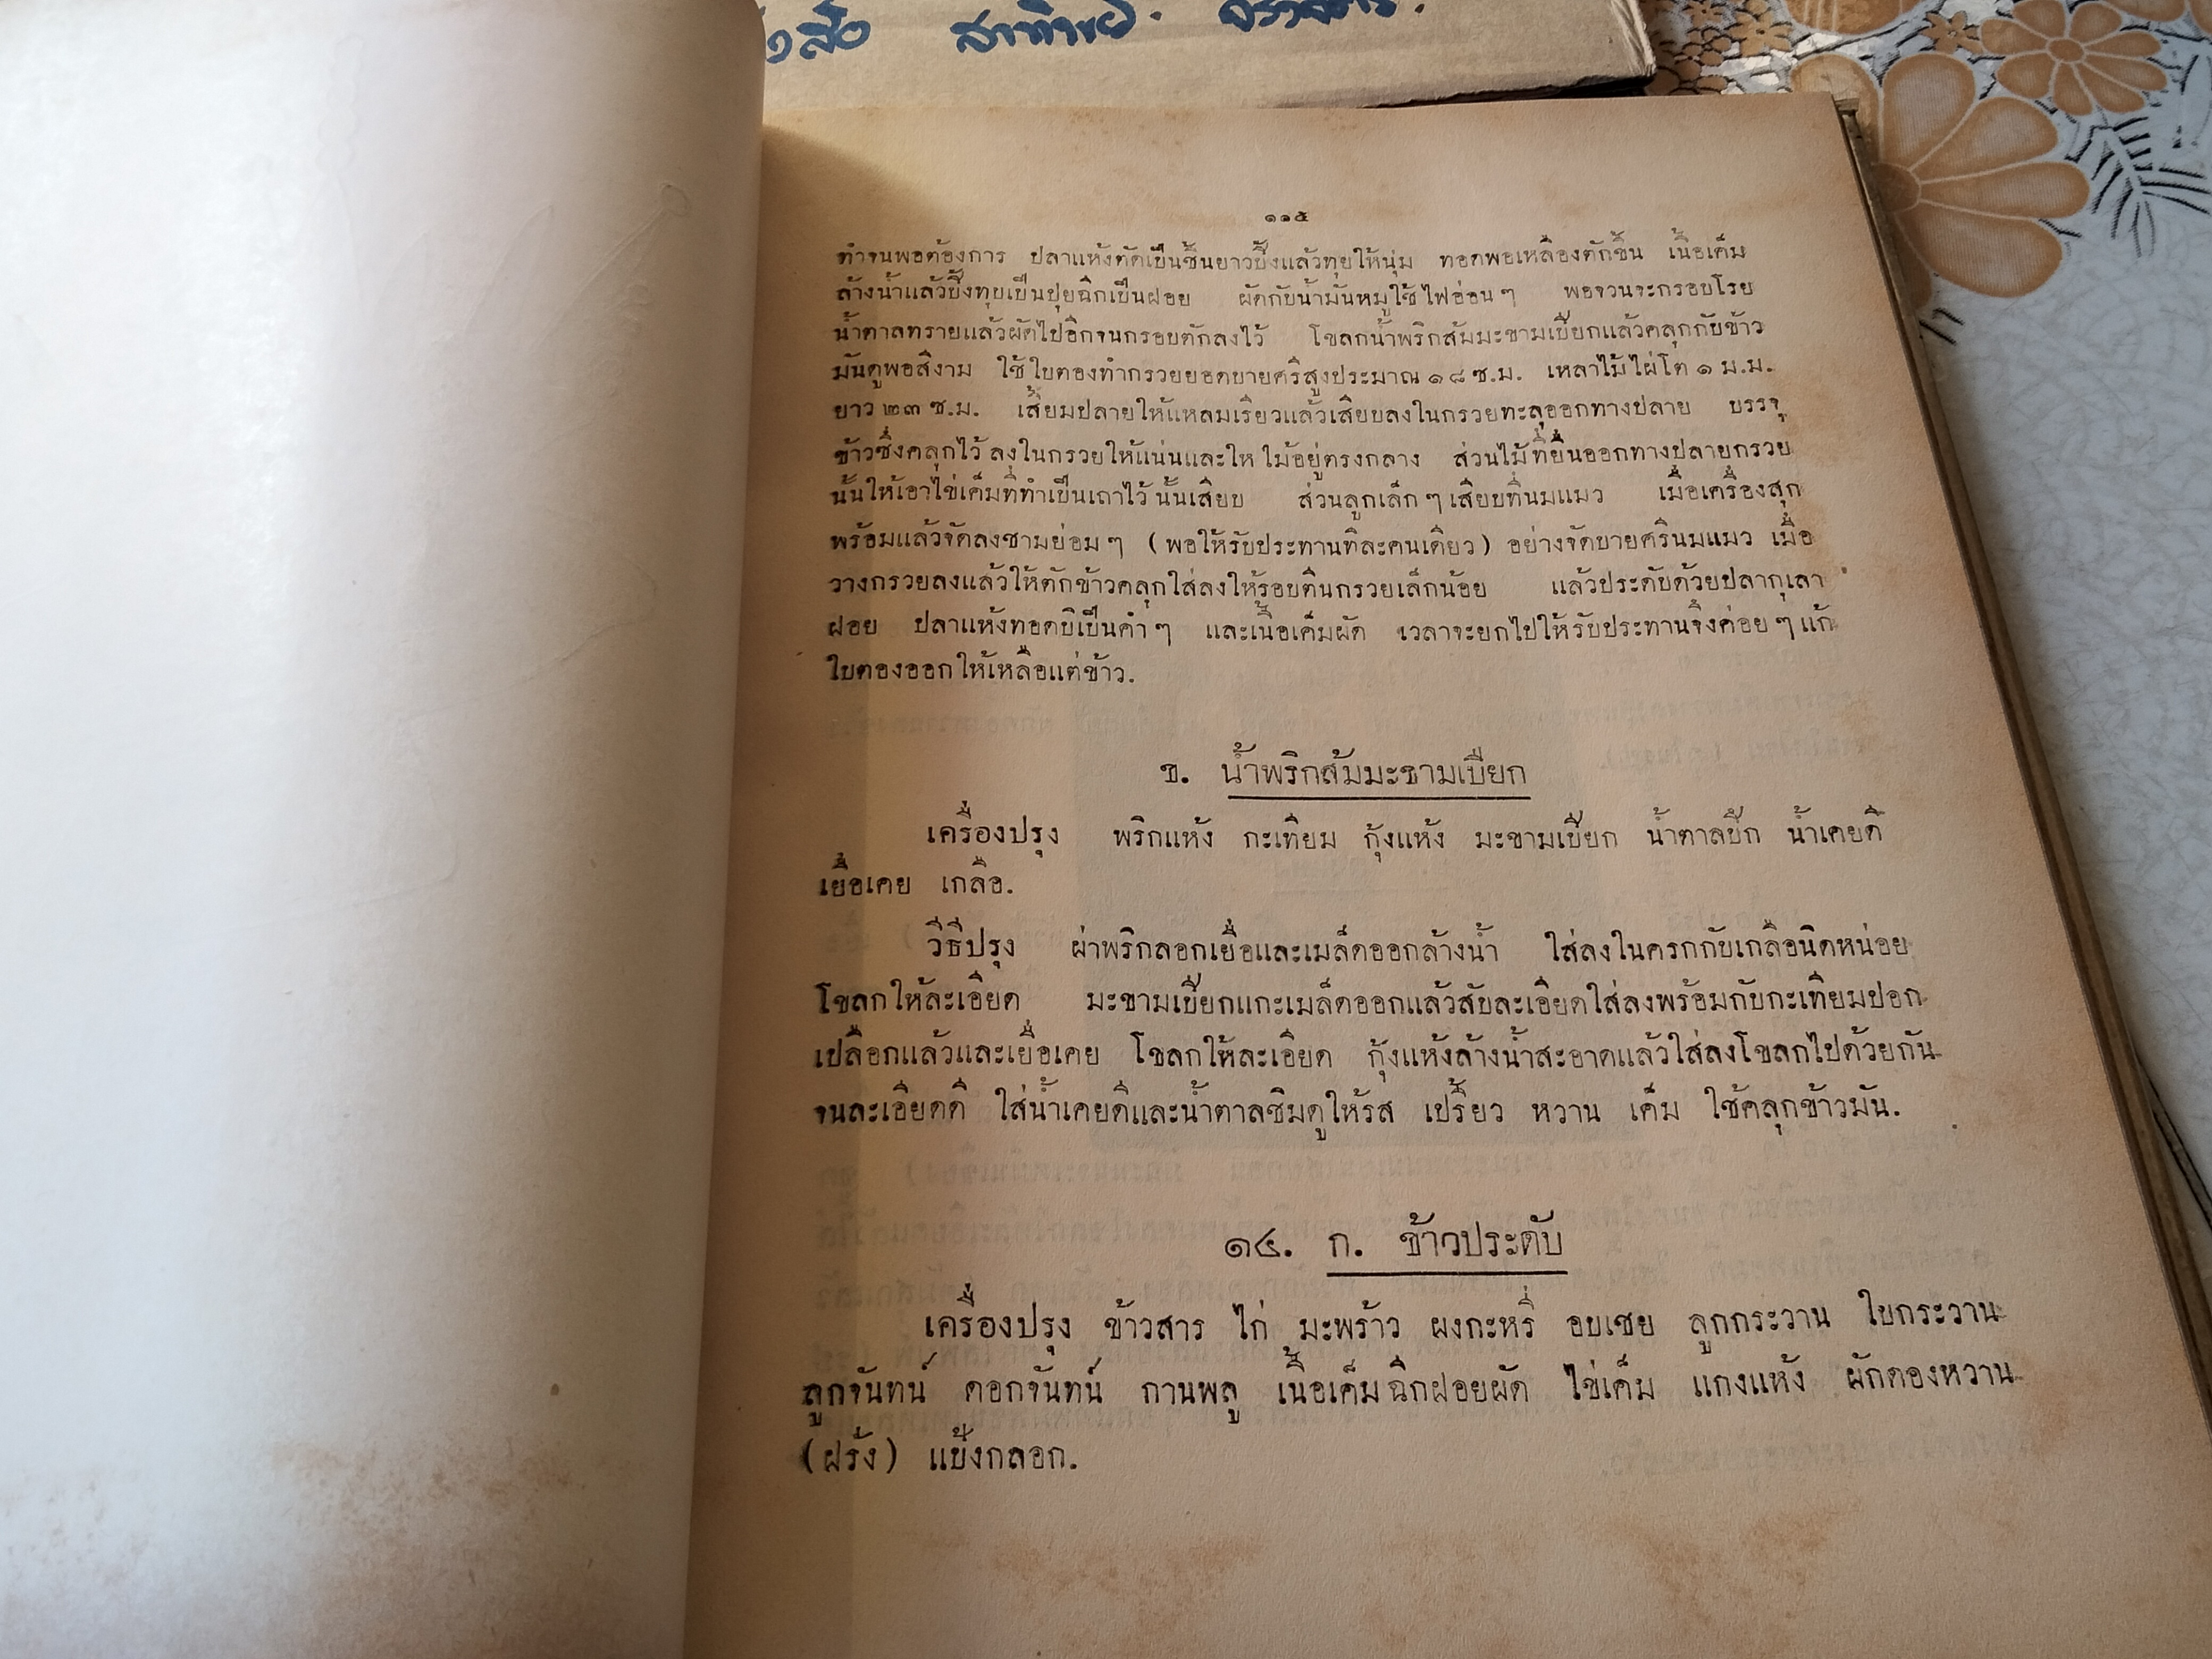 สาทิพย์.
๑๑๕
ทำจนพอต้องการ ปลาแห้งตัดเป็นชิ้นยาวปิ้งแล้วทุยให้นุ่ม ทอดพอเหลืองตักขึ้น เนื้อเค็ม
ล้างน้ำแล้วปิ้งทุยเป็นปุยฉีกเป็นฝอย ผัดกับน้ำมันหมูใช้ไฟอ่อนๆ พอจวนจะกรอบโรย
น้ำตาลทรายแล้วผัดไปอีกจนกรอบตักลงไว้ โขลกน้ำพริกส้มมะขามเปียกแล้วคลุกกับข้าว
มันดูพอสีงาม ใช้ใบตองทำกรวยยอดบายศรีสูงประมาณ ๑๘ ซ.ม. เหลาไม้ไผ่โต ๑ ม.ม.
ยาว ๒๓ ซ.ม. เสี้ยมปลายให้แหลมเรียวแล้วเสียบลงในกรวยทะลุออกทางปลาย บรรจุ
ข้าวซึ่งคลุกไว้ลงในกรวยให้แน่นและให ไม้อยู่ตรงกลาง ส่วนไม้ที่ยื่นออกทางปลายกรวย
นั้นให้เอาไข่เค็มที่ทำเป็นเถาไว้นั้นเสียบ ส่วนลูกเล็กๆ เสียบที่นมแมว เมื่อเครื่องสุก
พร้อมแล้วจัดลงชามย่อมๆ (พอให้รับประทานทีละคนเดียว) อย่างจัดบายศรีนมแมว เมื่อ
วางกรวยลงแล้วให้ตักข้าวคลุกใส่ลงให้รอบตีนกรวยเล็กน้อย แล้วประดับด้วยปลากุเลา
ฝอย ปลาแห้งทอดบิเป็นคำๆ และเนื้อเค็มผัด เวลาจะยกไปให้รับประทานจึงค่อยๆ แก้
ใบตองออกให้เหลือแต่ข้าว.
ข. น้ำพริกส้มมะขามเปียก
เครื่องปรุง พริกแห้ง กะเทียม กุ้งแห้ง มะขามเปียก น้ำตาลปึก น้ำเคยดี
เยื่อเคย เกลือ.
วิธีปรุง ผ่าพริกลอกเยื่อและเมล็ดออกล้างน้ำ ใส่ลงในครกกับเกลือนิดหน่อย
โขลกให้ละเอียด มะขามเปียกแกะเมล็ดออกแล้วสับละเอียดใส่ลงพร้อมกับกะเทียมปอก
เปลือกแล้วและเยื่อเคย โขลกให้ละเอียด กุ้งแห้งล้างน้ำสะอาดแล้วใส่ลงโขลกไปด้วยกัน
จนละเอียดดี ใส่น้ำเคยดีและน้ำตาลชิมดูให้รส เปรี้ยว หวาน เค็ม ใช้คลุกข้าวมัน.
๑๔. ก. ข้าวประดับ
เครื่องปรุง ข้าวสาร ไก่ มะพร้าว ผงกะหรี่ อบเชย ลูกกระวาน ใบกระวาน
ลูกจันทน์ ดอกจันทน์ กานพลู เนื้อเค็มฉีกฝอยผัด ไข่เค็ม แกงแห้ง ผักดองหวาน
(ฝรั่ง) แป้งกลอก.